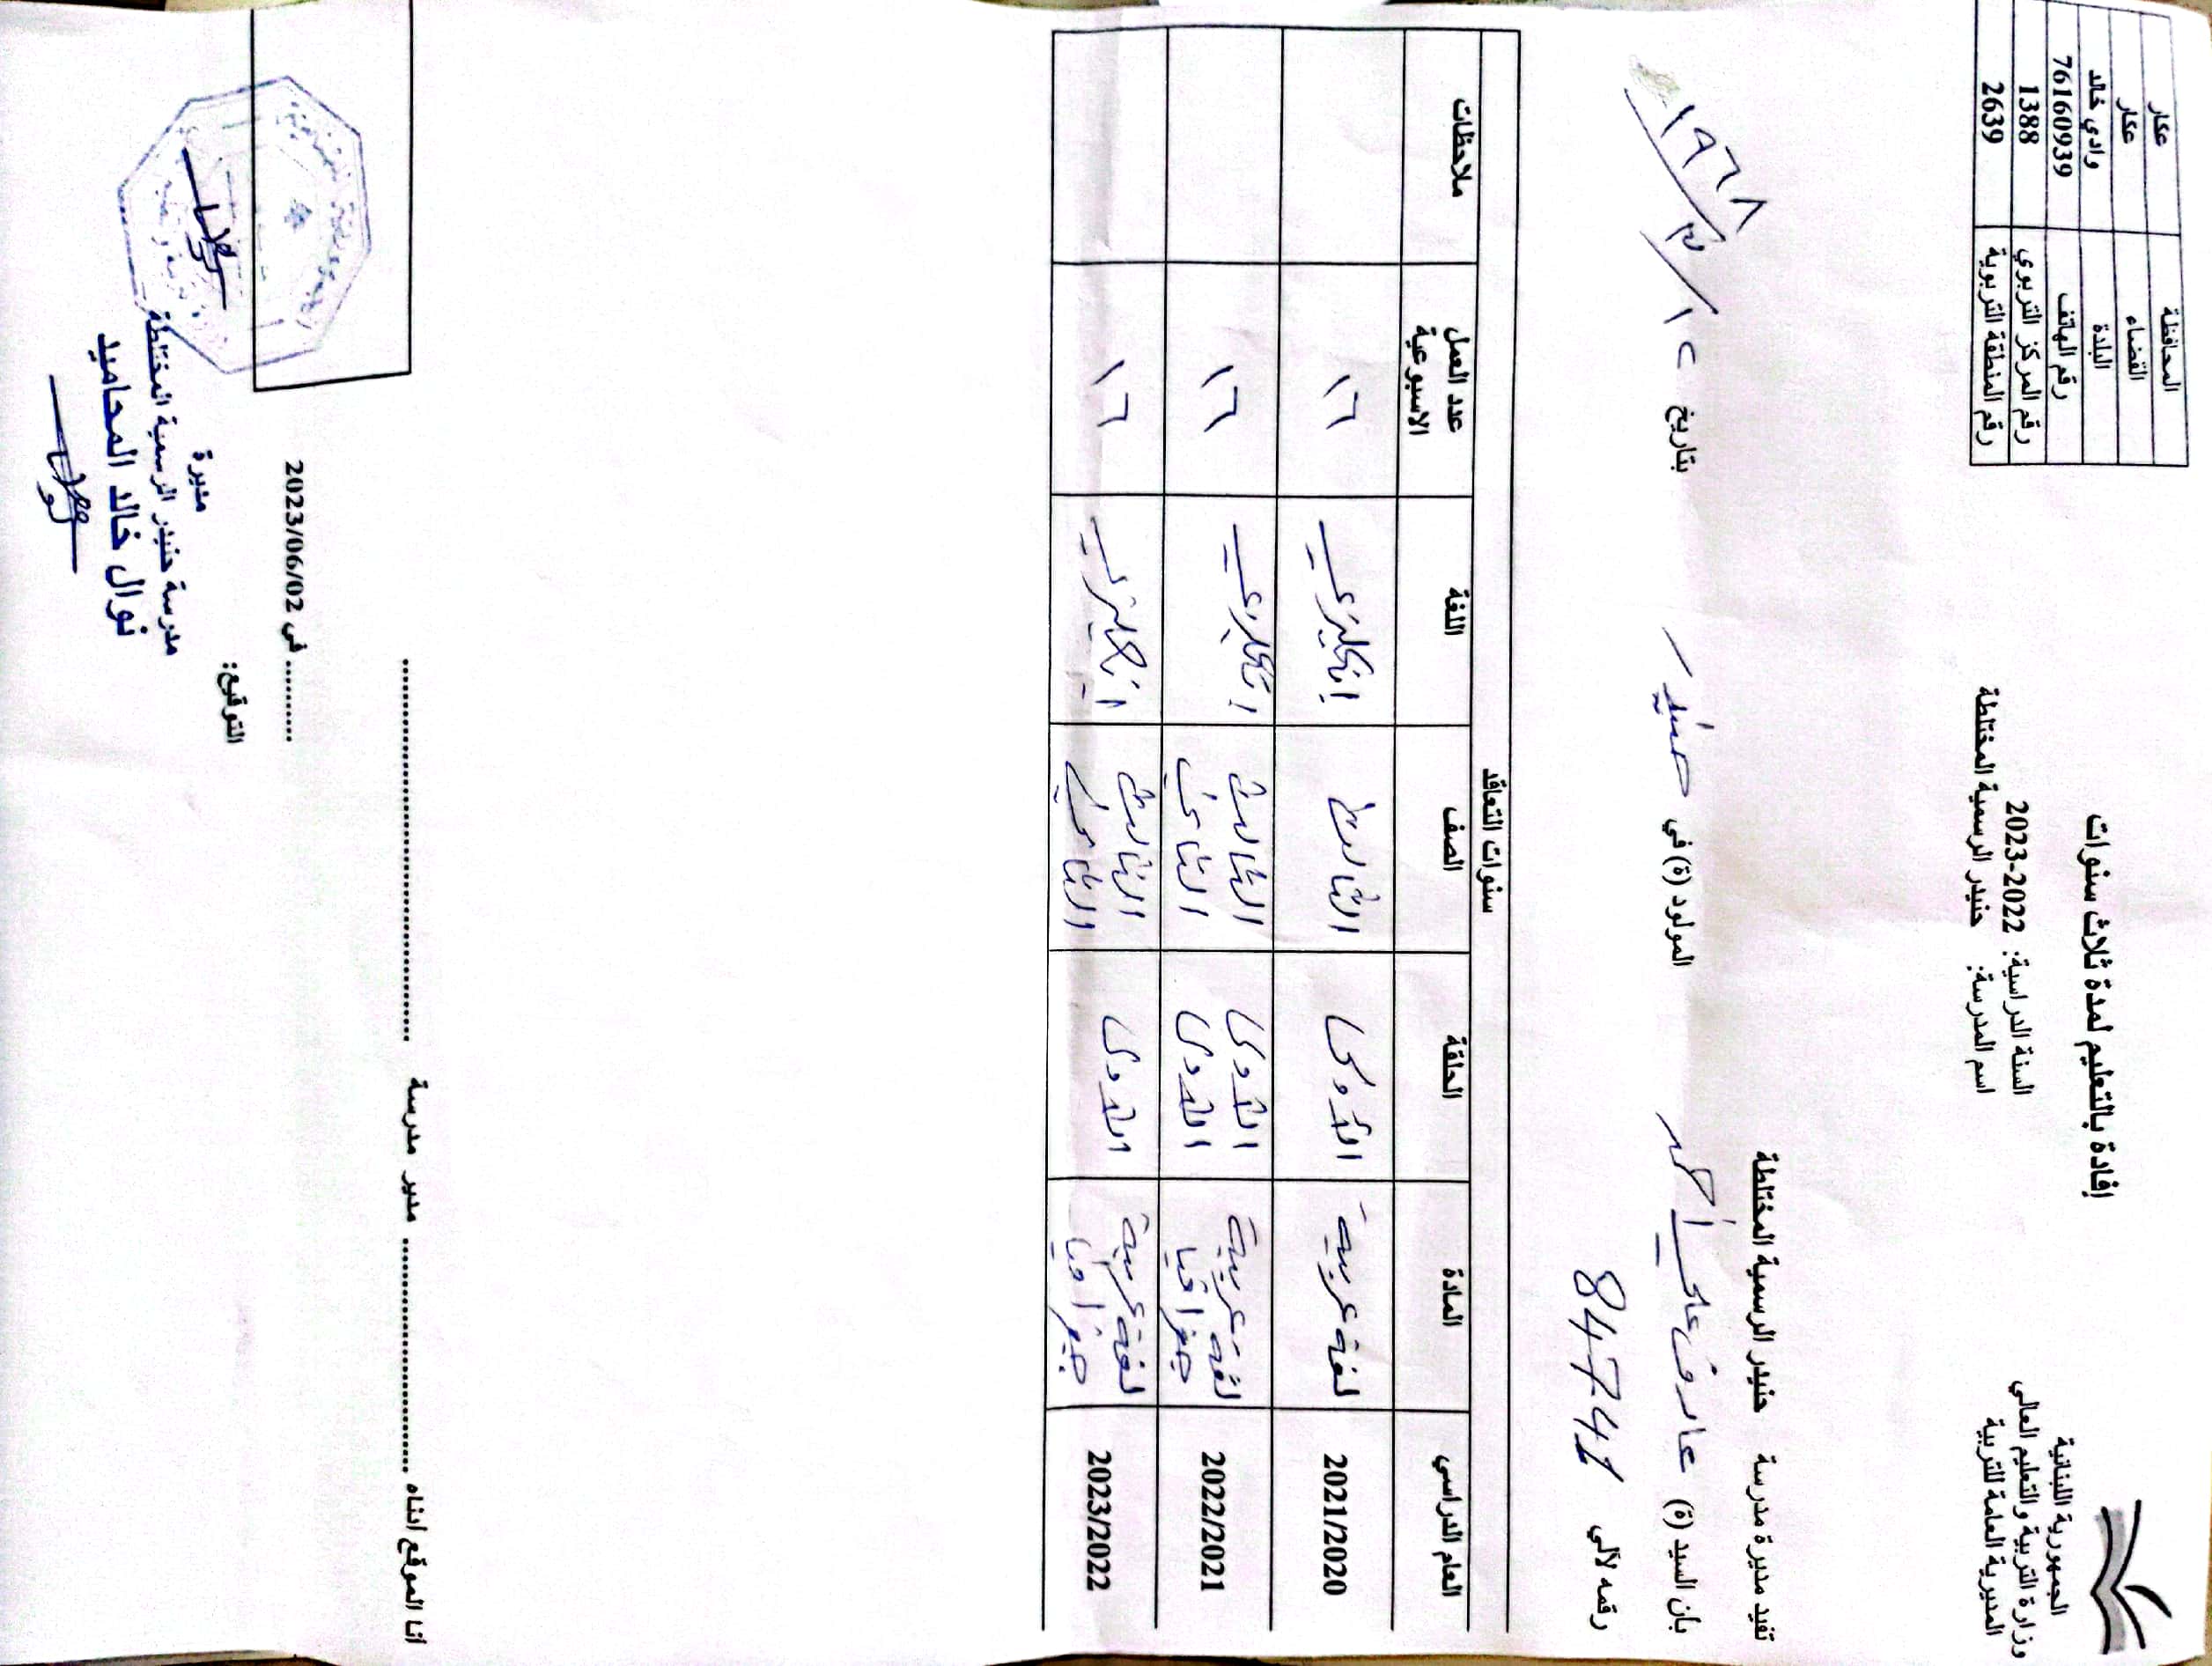 الجمهورية اللبنانية
وزارة التربية والتعليم العالي
المديرية العامة للتربية
إفادة بالتعليم لمدة ثلاث سنوات
السنة الدراسية: 2022-2023
اسم المدرسة: حنيدر الرسمية المختلطة
المحافظة عكار
القضاء عكار
البلدة وادي خالد
رقم الهاتف 76160939
رقم المركز التربوي 1388
رقم المنطقة التربوية 2639
تفيد مديرة مدرسة حنيدر الرسمية المختلطة
بان السيد (ة) عارف علي أحمد المولود (ة) في حنيدر بتاريخ ١٩٦٨/٣/١٢
رقمه لآلي 84741
سنوات التعاقد
العام الدراسي المادة الحلقة الصف اللغة عدد العمل الاسبوعية ملاحظات
2021/2020 لغة عربية الأولى الثالث انكليزي ١٦
2022/2021 لغة عربية الأولى الثالث انكليزي ١٦
جغرافيا الأولى الثاني
2023/2022 لغة عربية الأولى الثالث انكليزي ١٦
جغرافيا الثاني
أنا الموقع ادناه .................... مدير مدرسة ........................................
في .......... 2023/06/02
التوقيع:
مديرة
مدرسة حنيدر الرسمية المختلطة
نوال خالد المحاميد